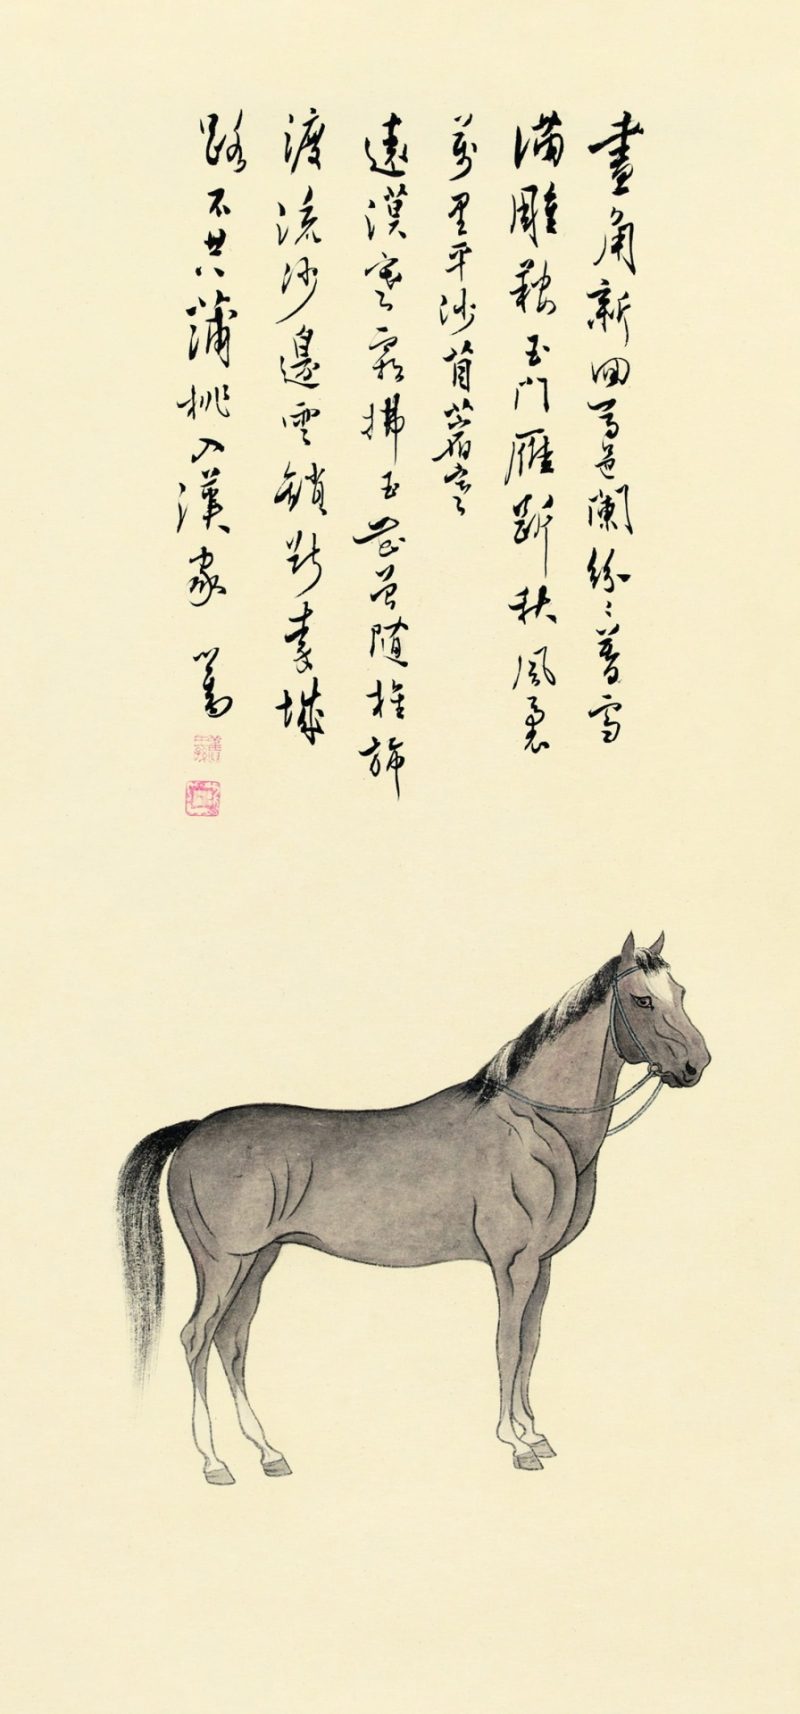 畫角新回馬邑闌紛〻暮雪
滿雕鞍玉門雁斷秋風裏
萬里平沙苜蓿寒
遠漠寒霜拂玉花曾隨旌旆
渡流沙邊雲鎖斷秦城
路不共蒲桃入漢家 心畬